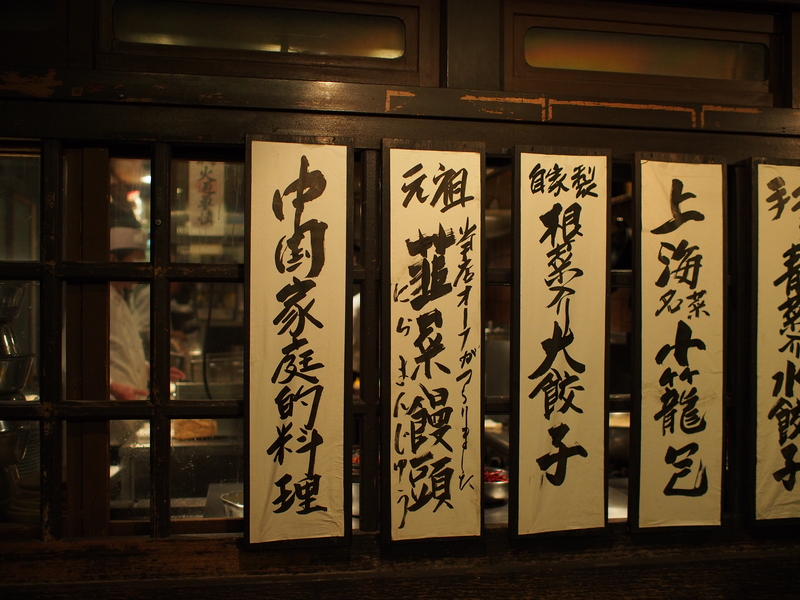 中国家庭的料理
元祖
韮菜饅頭
にらまんじゅう
当店オーブがつくりました
自家製
根菜入大餃子
上海
名菜
小籠包
青菜入水餃子